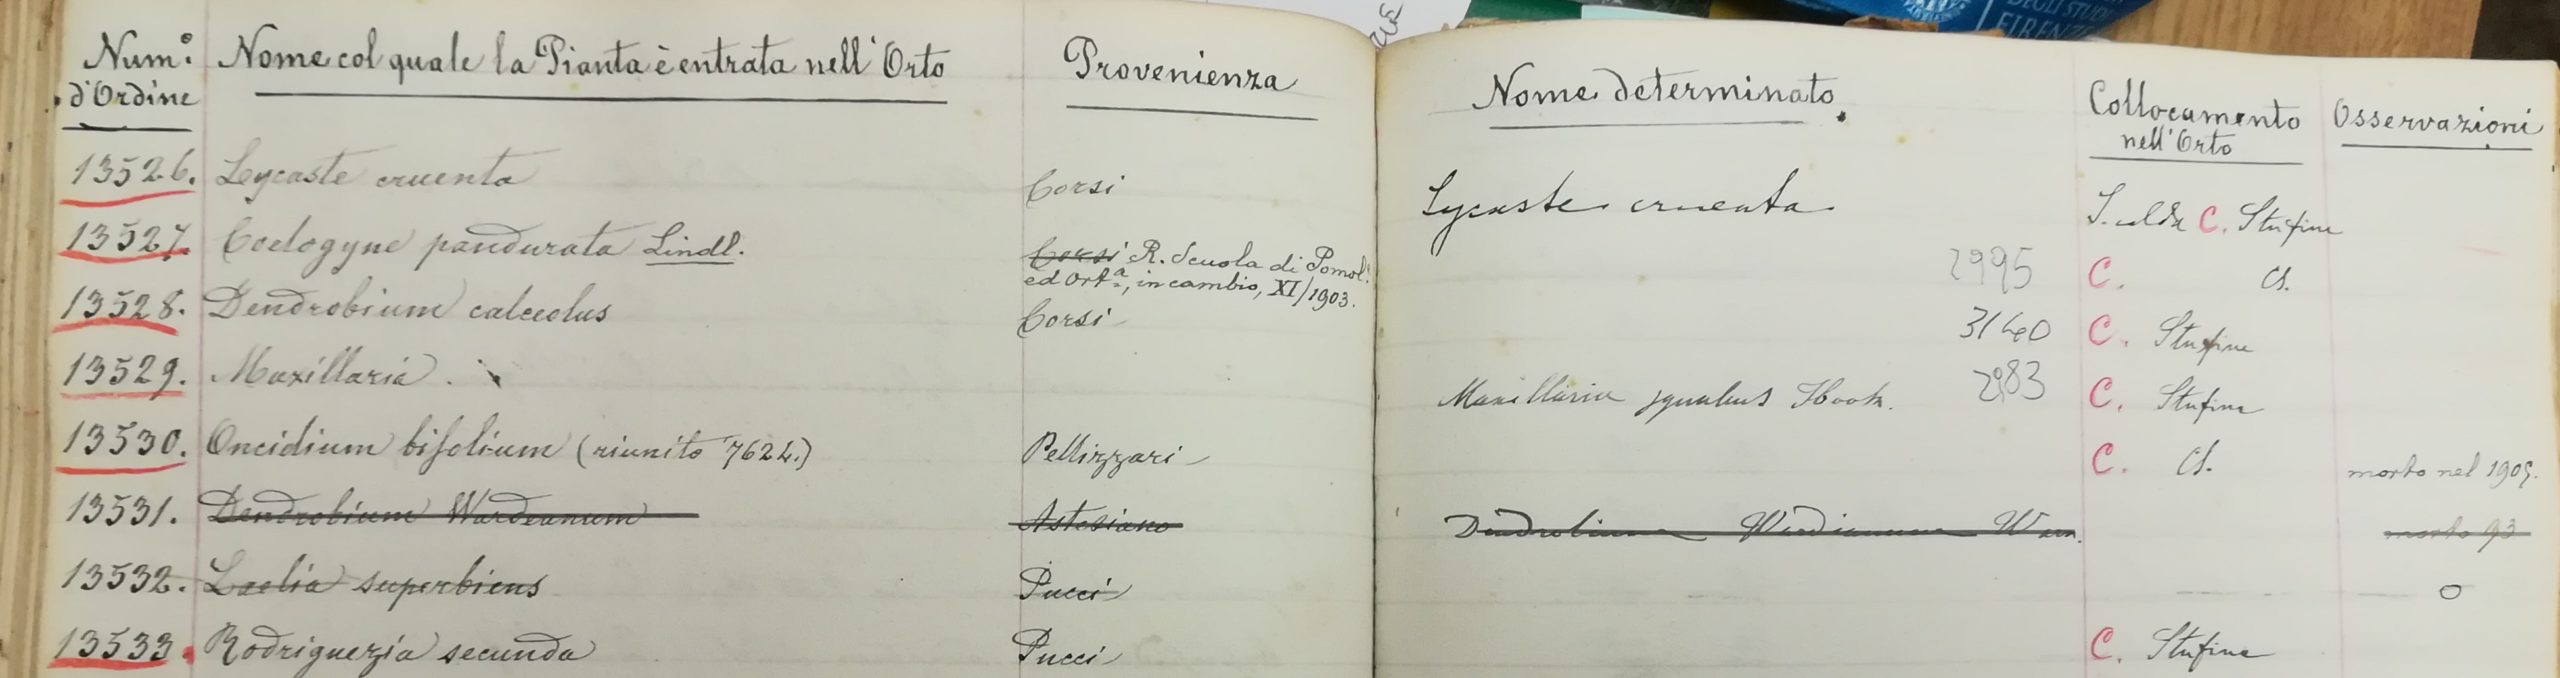 Num.º d'Ordine Nome col quale la Pianta è entrata nell'Orto Provenienza Nome determinato. Collocamento nell'Orto Osservazioni
13526. Lycaste cruenta Corsi Lycaste cruenta C. Stufine
13527. Coelogyne pandurata Lindl. Corsi R. Scuola di Pomol. ed Ort.ª, in cambio, XI/1903. 2995 C. Cl.
13528. Dendrobium calceolus Corsi 3140 C. Stufine
13529. Maxillaria. Maxillaria Hook. 2983 C. Stufine
13530. Oncidium bifolium (riunito 7624.) Pellizzari C. Cl. morto nel 1905.
13531. Dendrobium Wardeanum Astesiano Dendrobium Wardianum Warn. morto 93
13532. Laelia superbiens Pucci O
13533. Rodriguezia secunda Pucci C. Stufine
DEGLI STUDI
FIRENZE